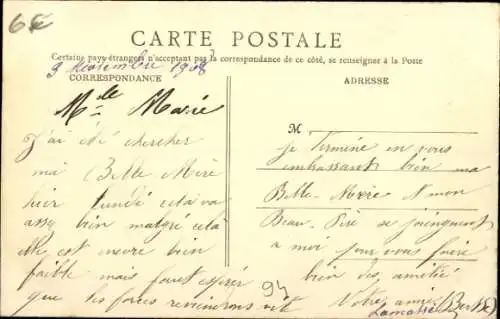 6€
CARTE POSTALE
Certains pays étrangers n'acceptant pas la correspondance de ce côté, se renseigner à la Poste
9 Novembre 1908
CORRESPONDANCE
Mlle Marie
J'ai été chercher
ma Belle Mère
hier lundé cela va
assy bien malgré cela
elle est encore bien
faible mais faut espérer
que les forces reviendrons vit
94
ADRESSE
M
Je Termine en vous
embassant bien ma
Belle-Mère et mon
Beau-Père se joingnent
a moi pour vous faire
bien des amitiés
Votre amie Berthe